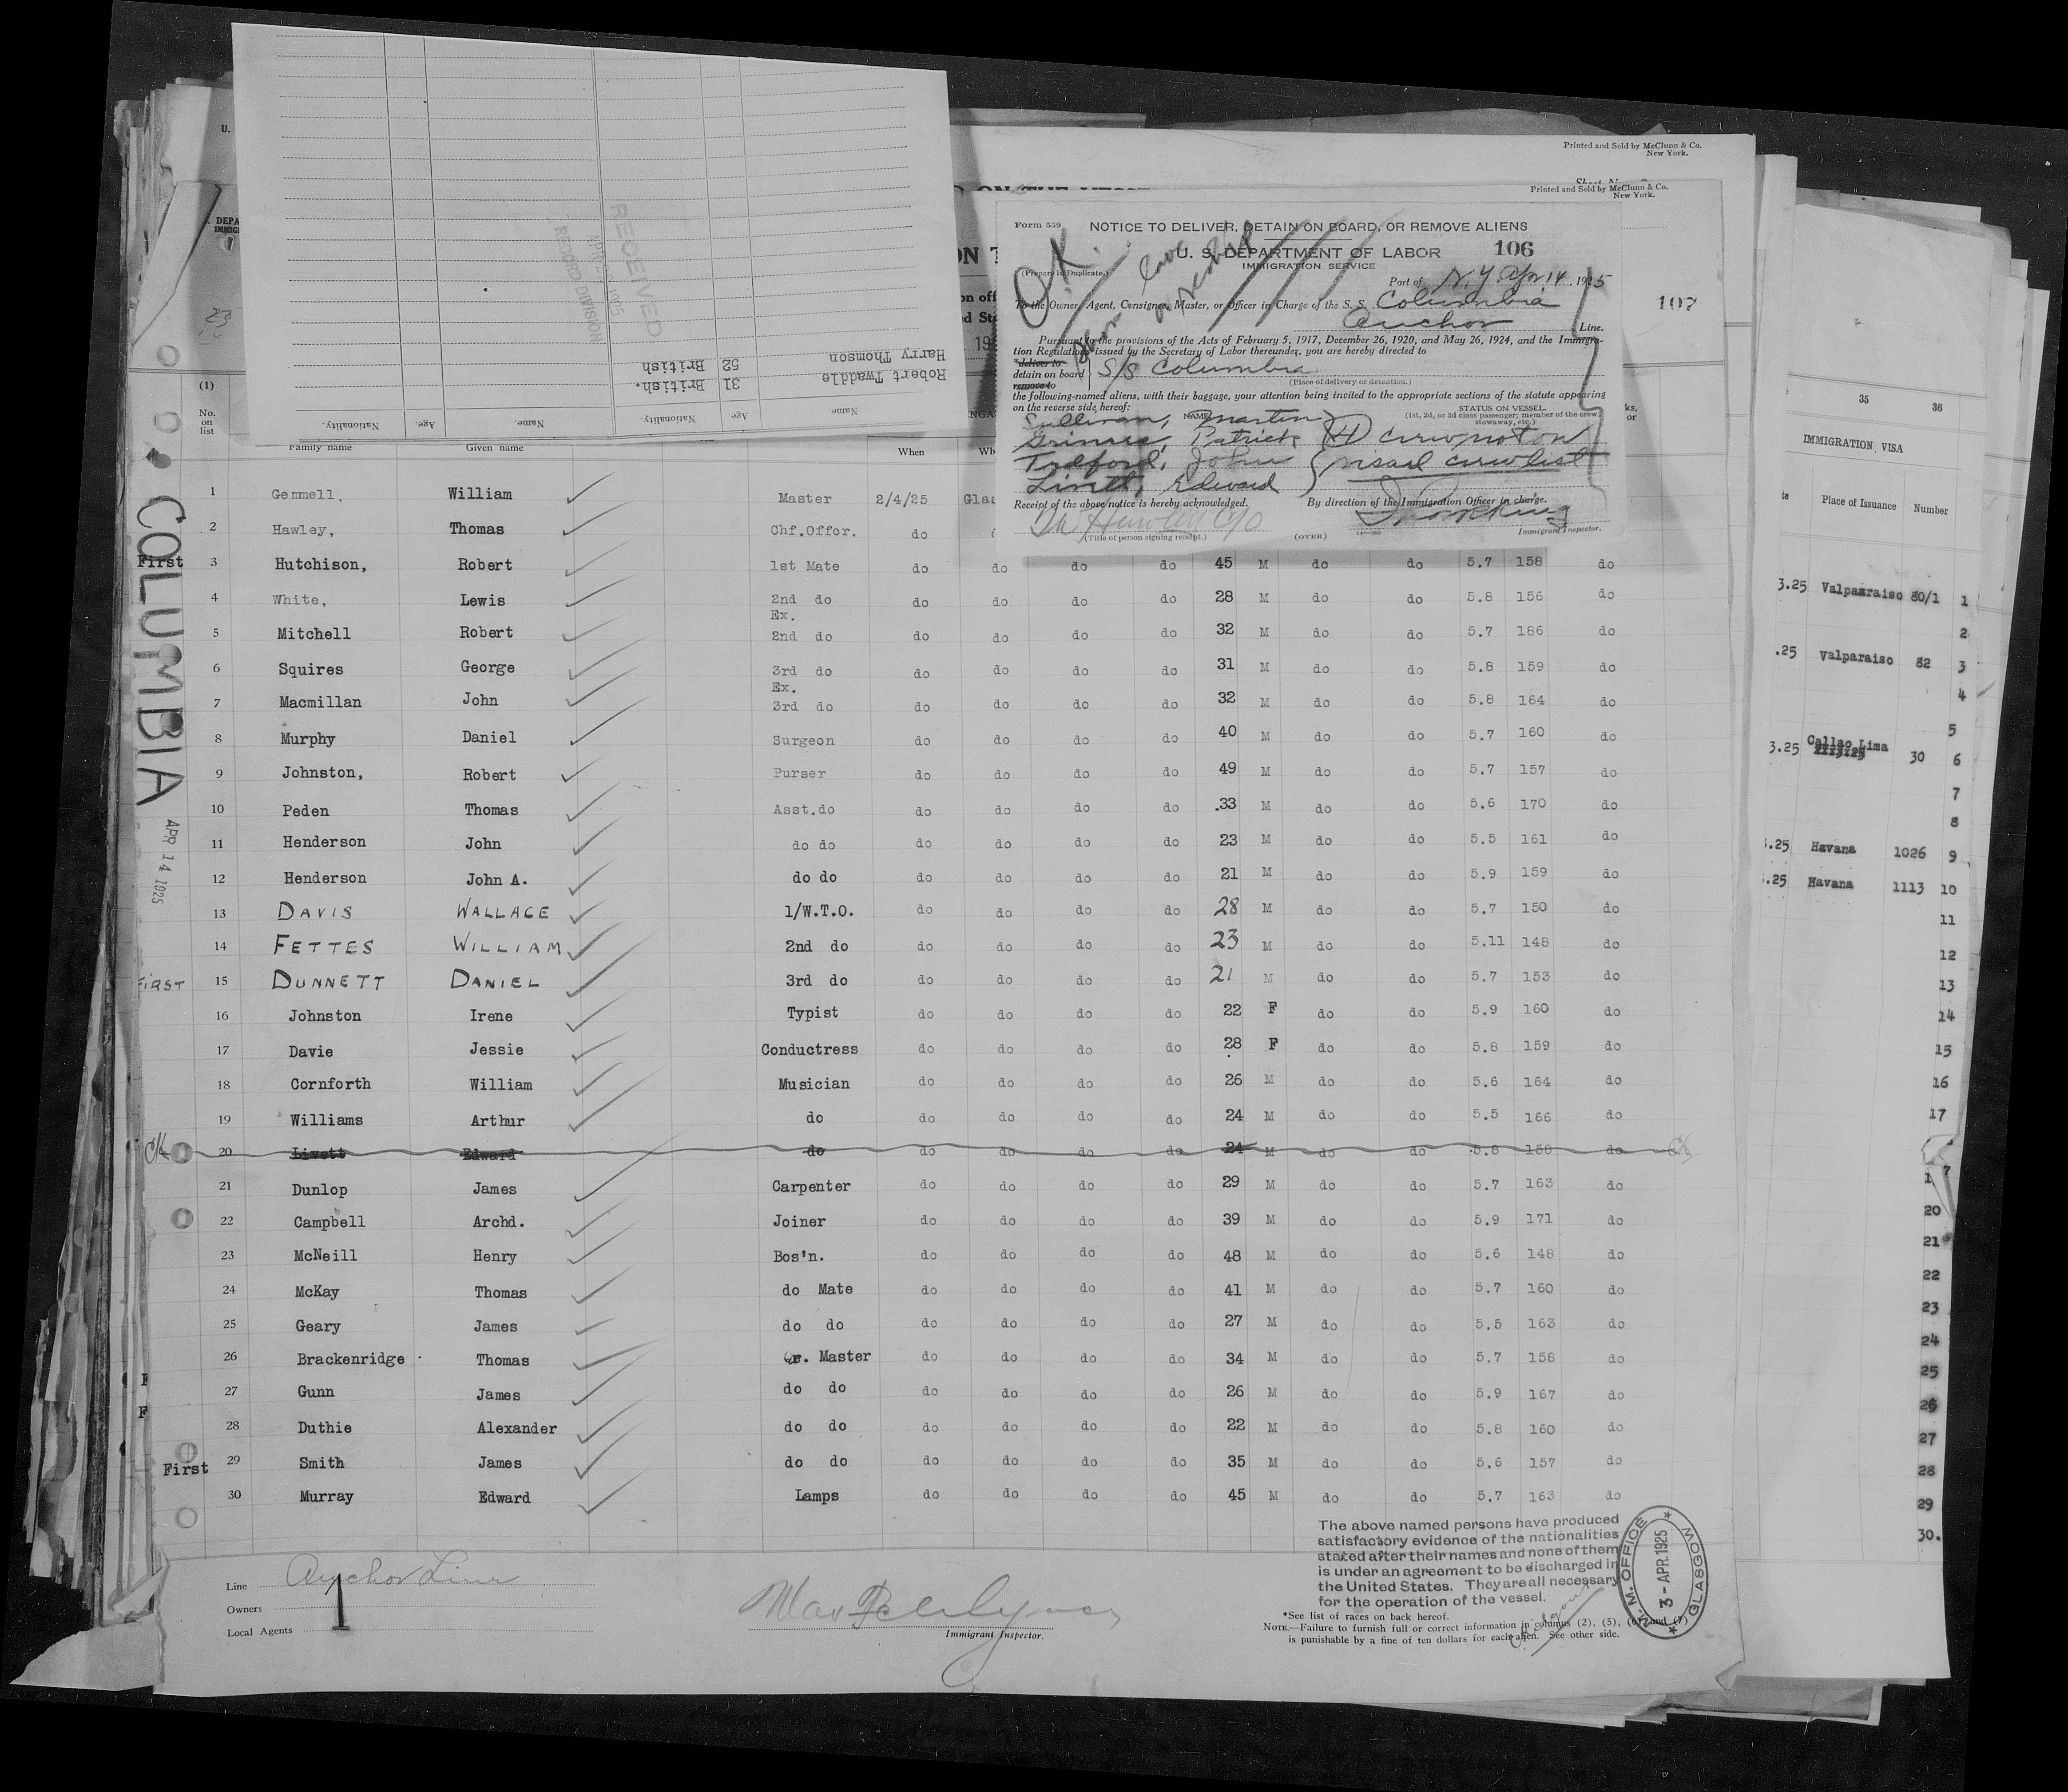 Printed and Sold by McClunn & Co.
New York.
Printed and Sold by McClunn & Co.
New York.
Form 559
NOTICE TO DELIVER, DETAIN ON BOARD, OR REMOVE ALIENS
U. S. DEPARTMENT OF LABOR 106
IMMIGRATION SERVICE
(Prepare in Duplicate.)
O.K.
Port of N.Y. Apr 14, 1925
To the Owner, Agent, Consignee, Master, or Officer in Charge of the S. S. Columbia
Anchor Line.
107
Pursuant to the provisions of the Acts of February 5, 1917, December 26, 1920, and May 26, 1924, and the Immigra-
tion Regulations issued by the Secretary of Labor thereunder, you are hereby directed to
*deliver to
detain on board S/S Columbia
remove to
(Place of delivery or detention.)
the following-named aliens, with their baggage, your attention being invited to the appropriate sections of the statute appearing
on the reverse side hereof:
NAME. STATUS ON VESSEL.
(1st, 2d, or 3d class passenger; member of the crew; stowaway, etc.)
Sullivan, Martin
Patrick (4) crew not on
John visaed crew list
Livett, Edward
Receipt of the above notice is hereby acknowledged. By direction of the Immigration Officer in charge.
(Title of person signing receipt.) (OVER) Immigrant Inspector.
Name. Age. Nationality. Name. Age. Nationality.
Robert Twaddle 31 British.
Harry Thomson 52 British
RECEIVED
RECORD DIVISION
COLUMBIA
APR 14 1925
(1)
No. on list
Family name Given name When
1 Gemmell, William Master 2/4/25
2 Hawley, Thomas Chf.Offcr. do
First 3 Hutchison, Robert 1st Mate do do do do 45 M do do 5.7 158 do
4 White, Lewis 2nd do do do do do 28 M do do 5.8 156 do
5 Mitchell Robert Ex. 2nd do do do do do 32 M do do 5.7 186 do
6 Squires George 3rd do do do do do 31 M do do 5.8 159 do
7 Macmillan John Ex. 3rd do do do do do 32 M do do 5.8 164 do
8 Murphy Daniel Surgeon do do do do 40 M do do 5.7 160 do
9 Johnston, Robert Purser do do do do 49 M do do 5.7 157 do
10 Peden Thomas Asst.do do do do do 33 M do do 5.6 170 do
11 Henderson John do do do do do do 23 M do do 5.5 161 do
12 Henderson John A. do do do do do do 21 M do do 5.9 159 do
13 DAVIS WALLACE 1/W.T.O. do do do do 28 M do do 5.7 150 do
14 FETTES WILLIAM 2nd do do do do do 23 M do do 5.11 148 do
FIRST 15 DUNNETT DANIEL 3rd do do do do do 21 M do do 5.7 153 do
16 Johnston Irene Typist do do do do 22 F do do 5.9 160 do
17 Davie Jessie Conductress do do do do 28 F do do 5.8 159 do
18 Cornforth William Musician do do do do 26 M do do 5.6 164 do
19 Williams Arthur do do do do do 24 M do do 5.5 166 do
20 Livett Edward do do do do do 24 M do do 5.8 158 do
21 Dunlop James Carpenter do do do do 29 M do do 5.7 163 do
22 Campbell Archd. Joiner do do do do 39 M do do 5.9 171 do
23 McNeill Henry Bos'n. do do do do 48 M do do 5.6 148 do
24 McKay Thomas do Mate do do do do 41 M do do 5.7 160 do
25 Geary James do do do do do do 27 M do do 5.5 163 do
26 Brackenridge Thomas Qr. Master do do do do 34 M do do 5.7 158 do
27 Gunn James do do do do do do 26 M do do 5.9 167 do
28 Duthie Alexander do do do do do do 22 M do do 5.8 160 do
First 29 Smith James do do do do do do 35 M do do 5.6 157 do
30 Murray Edward Lamps do do do do 45 M do do 5.7 163 do
The above named persons have produced
satisfactory evidence of the nationalities
stated after their names and none of them
is under an agreement to be discharged in
the United States. They are all necessary
for the operation of the vessel.
M. M. OFFICE GLASGOW
3 - APR 1925
Line Anchor Line
Owners
Local Agents
1
Immigrant Inspector.
*See list of races on back hereof.
NOTE.—Failure to furnish full or correct information in columns (2), (5), (6) and (7)
is punishable by a fine of ten dollars for each alien. See other side.
35 36
IMMIGRATION VISA
Place of Issuance Number
3.25 Valparaiso 80/1 1
2
.25 Valparaiso 82 3
4
5
3.25 Callao Lima 30 6
7
8
.25 Havana 1026 9
.25 Havana 1113 10
11
12
13
14
15
16
17
20
21
22
23
24
25
26
27
28
29
30.